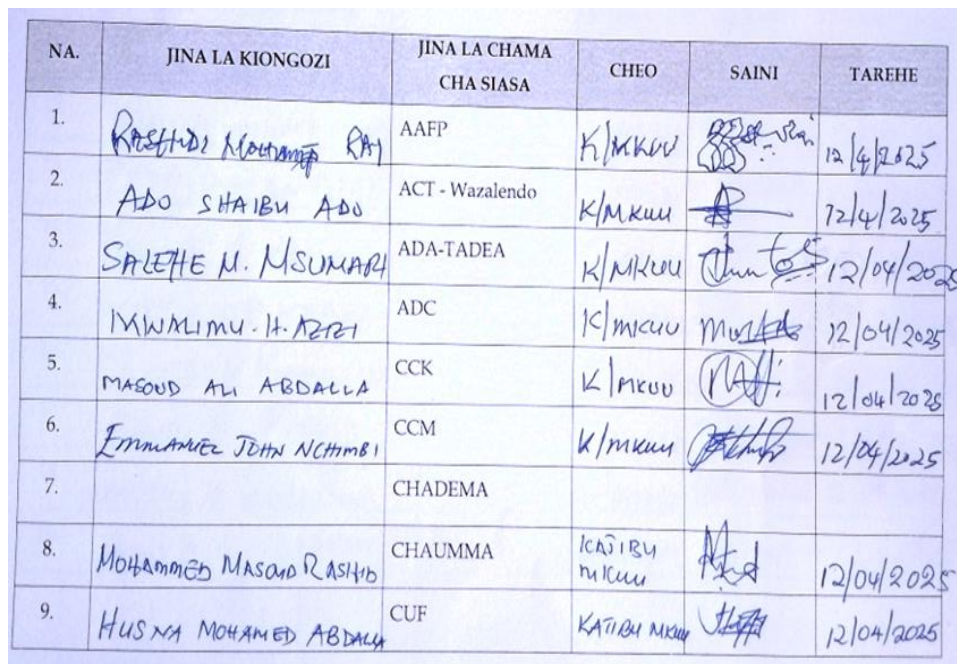 NA. JINA LA KIONGOZI JINA LA CHAMA CHA SIASA CHEO SAINI TAREHE
1. RASHIDI MOHAMED RAI AAFP K/MKUU 12/4/2025
2. ADO SHAIBU ADO ACT - Wazalendo K/MKUU 12/4/2025
3. SALEHE M. MSUMARI ADA-TADEA K/MKUU 12/04/2025
4. MWALIMU. H. AZIZI ADC K/MKUU 12/04/2025
5. MASOUD ALI ABDALLA CCK K/MKUU 12/04/2025
6. EMMANUEL JOHN NCHIMBI CCM K/MKUU 12/04/2025
7. CHADEMA
8. MOHAMMED MASOUD RASHID CHAUMMA KATIBU MKUU 12/04/2025
9. HUSNA MOHAMED ABDALLA CUF KATIBU MKUU 12/04/2025